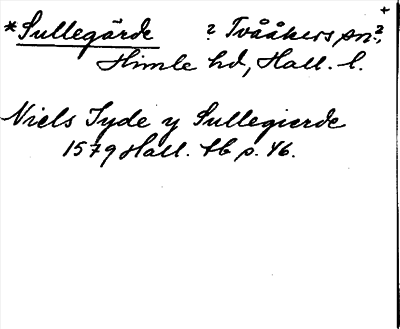 *Sullegärde ? Tvååkers sn?, +
Himle hd, Hall. l.
Niels Tyde y Sullegierde
1579 Hall. tb p. 46.